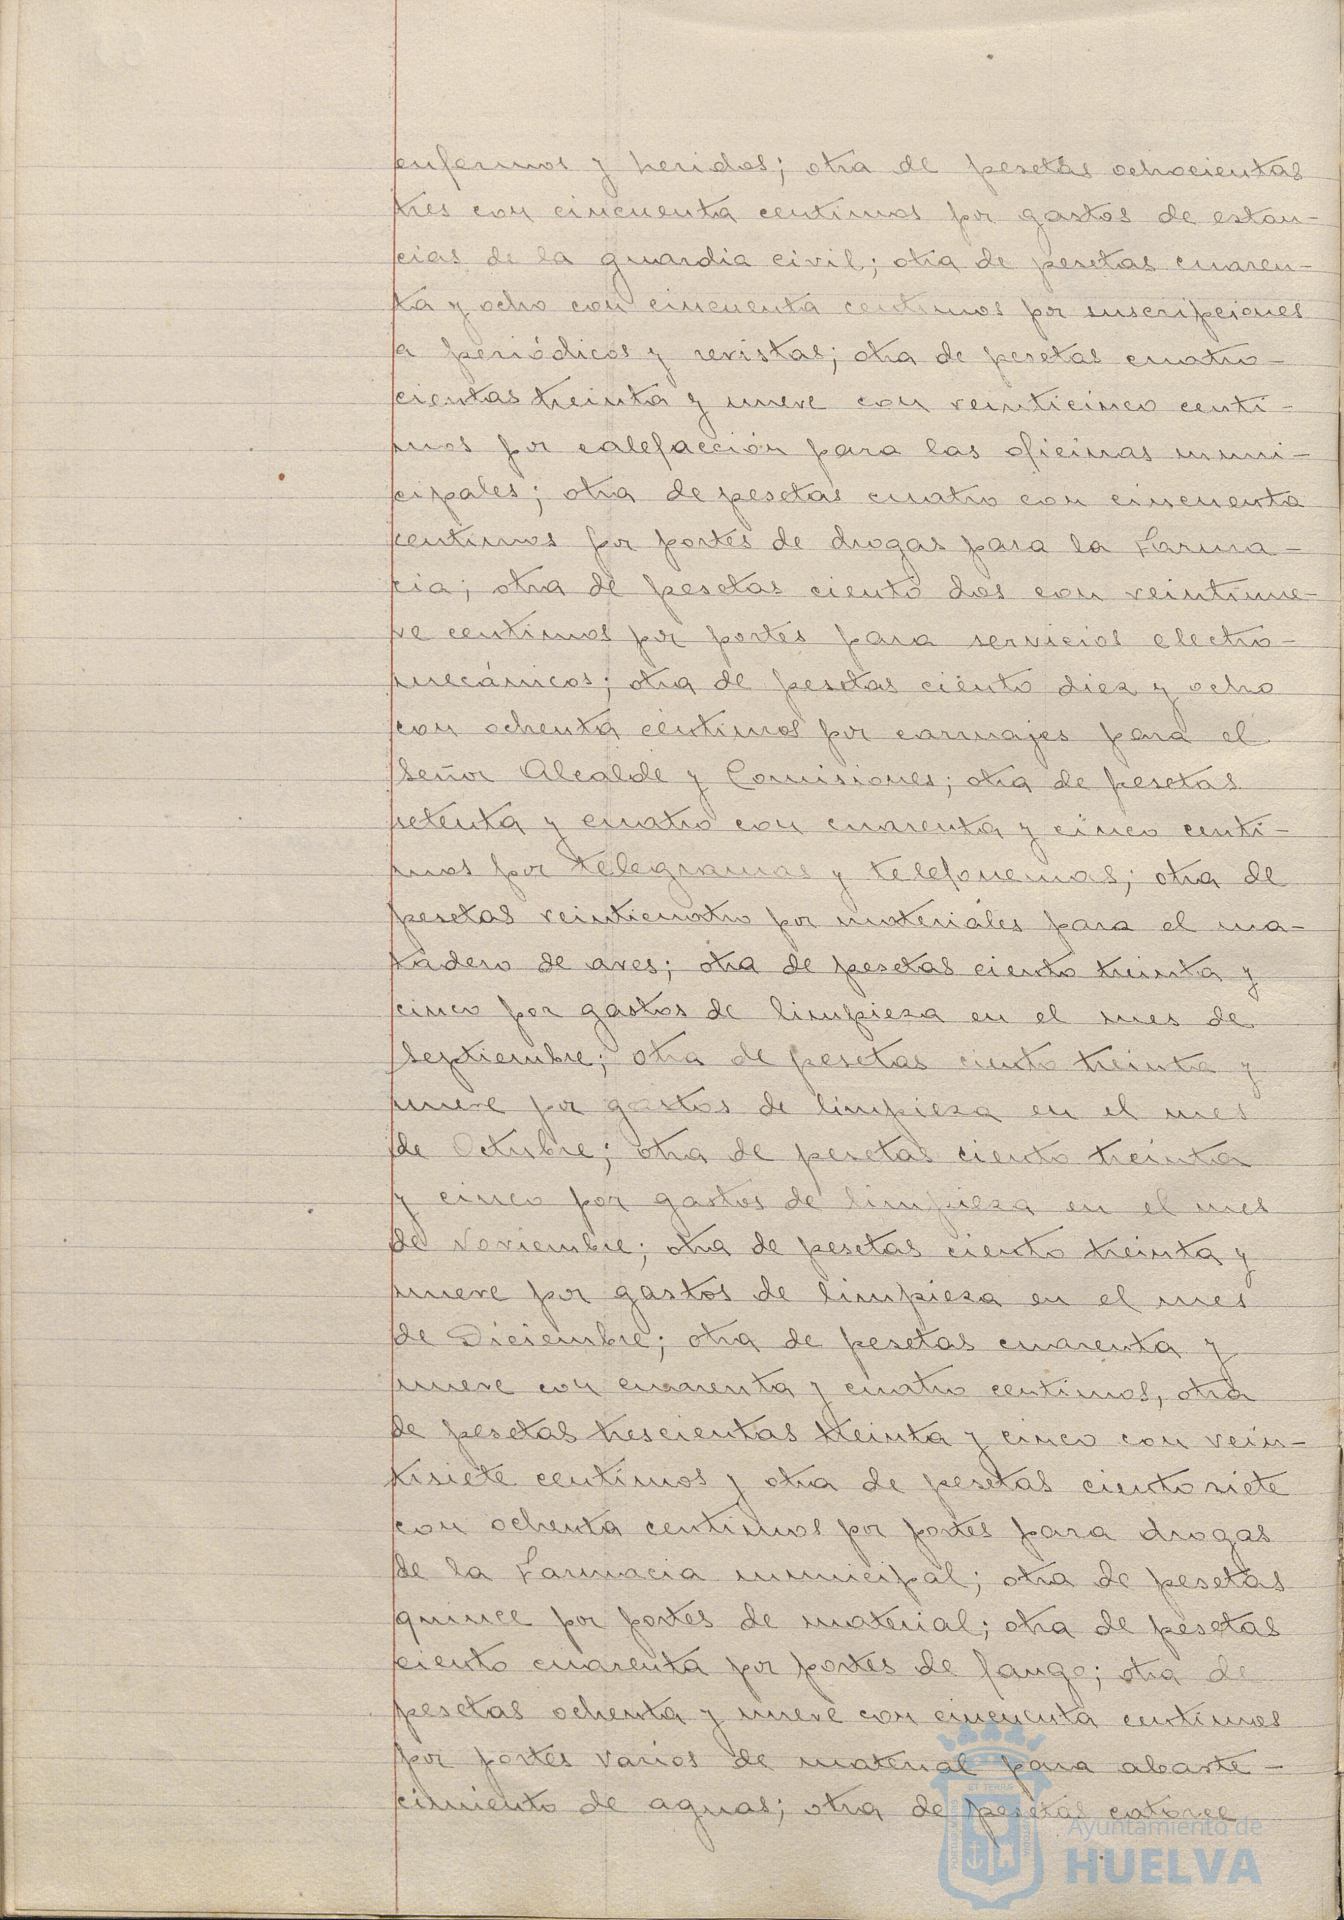 enfermos y heridos; otra de pesetas ochocientas
tres con cincuenta centimos por gastos de estan-
cias de la guardia civil; otra de pesetas cuaren-
ta y ocho con cincuenta centimos por suscripciones
a periódicos y revistas; otra de pesetas cuatro-
cientas treinta y nueve con veinticinco centi-
mos por calefacción para las oficinas muni-
cipales; otra de pesetas cuatro con cincuenta
centimos por portes de drogas para la Farma-
cia; otra de pesetas ciento dos con veintinue-
ve centimos por portes para servicios electro-
mecánicos; otra de pesetas ciento diez y ocho
con ochenta centimos por carruajes para el
Señor Alcalde y Comisiones; otra de pesetas
setenta y cuatro con cuarenta y cinco centi-
mos por telegramas y telefonemas; otra de
pesetas veinticuatro por materiales para el ma-
tadero de aves; otra de pesetas ciento treinta y
cinco por gastos de limpieza en el mes de
Septiembre; otra de pesetas ciento treinta y
nueve por gastos de limpieza en el mes
de Octubre; otra de pesetas ciento treinta
y cinco por gastos de limpieza en el mes
de Noviembre; otra de pesetas ciento treinta y
nueve por gastos de limpieza en el mes
de Diciembre; otra de pesetas cuarenta y
nueve con cuarenta y cuatro centimos, otra
de pesetas trescientas treinta y cinco con vein-
tisiete centimos y otra de pesetas ciento siete
con ochenta centimos por portes para drogas
de la Farmacia municipal; otra de pesetas
quince por portes de material; otra de pesetas
ciento cuarenta por portes de fango; otra de
pesetas ochenta y nueve con cincuenta centimos
por portes varios de material para abaste-
cimiento de aguas; otra de pesetas catorce
ET TERRÆ
PORTUS MARIS
CUSTODIA
Ayuntamiento de
HUELVA